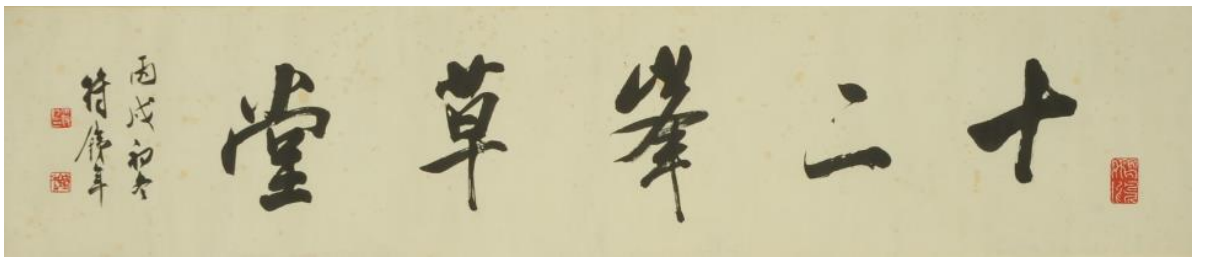 十二峯草堂
丙戌初冬
符鐵年